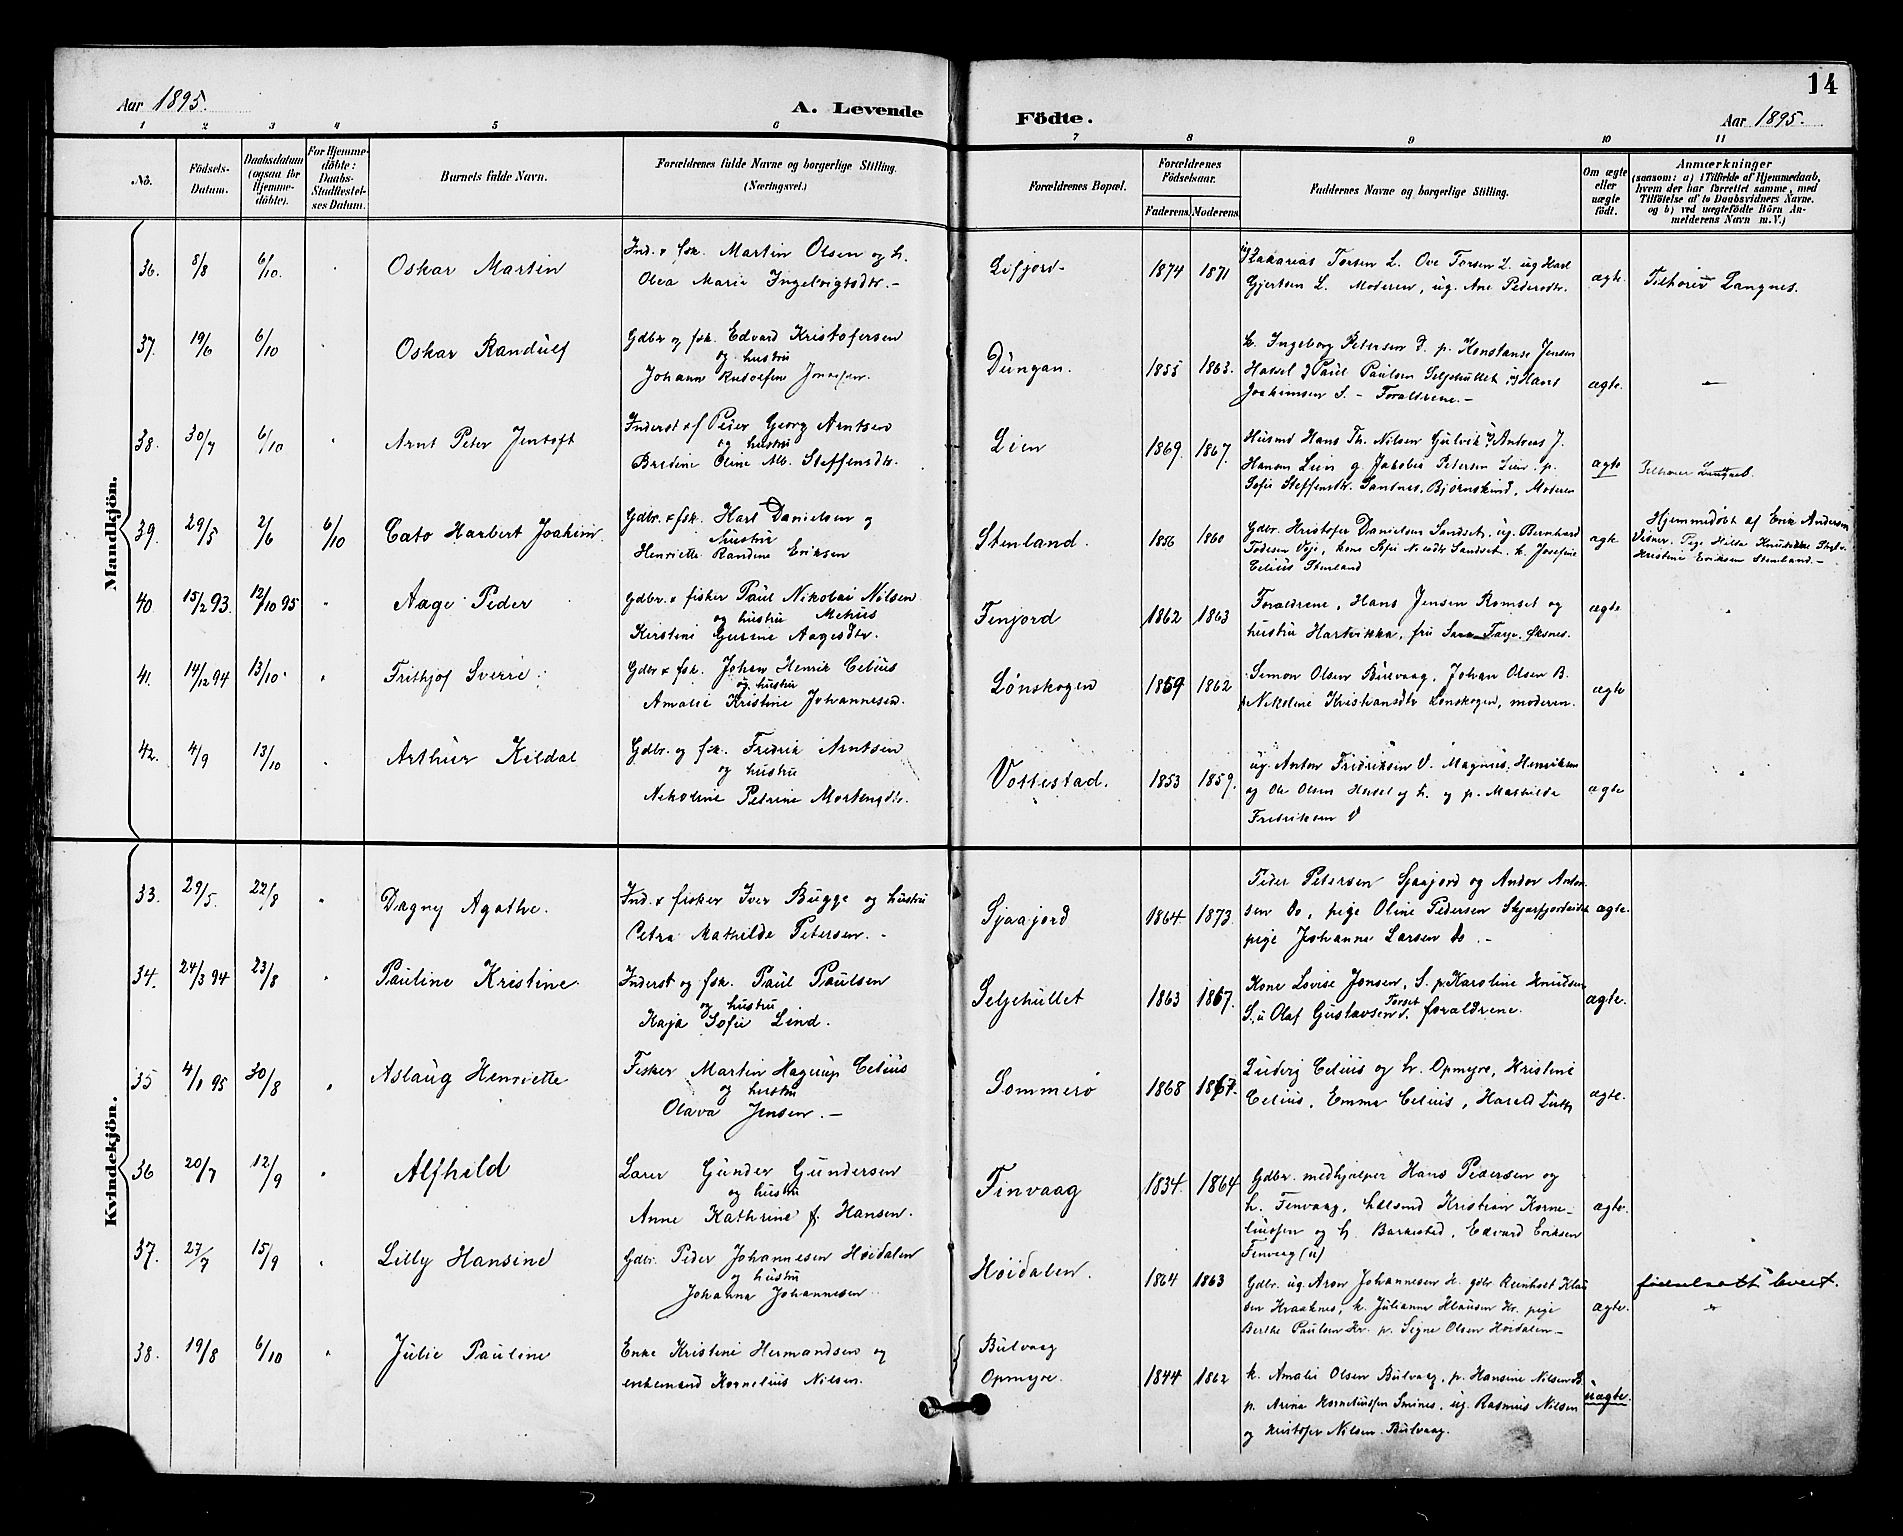 14
Aar 1895.
A. Levende
Födte.
Aar 1895.
1 2 3 4 5 6 7 8 9 10 11
No.
Födsels-Datum.
Daabsdatum (ogsaa for Hjemme-döbte).
For Hjemme-döbte: Daabs-Stadfæstel-ses Datum.
Barnets fulde Navn.
Forældrenes fulde Navne og borgerlige Stilling.
(Næringsvei.)
Forældrenes Bopæl.
Forældrenes Födselsaar.
Faderens. Moderens.
Faddernes Navne og borgerlige Stilling.
Om ægte eller uægte födt.
Anmærkninger
(saasom: a) i Tilfælde af Hjemmedaab,
hvem der har forrettet samme, med
Tilföielse af to Daabsvidners Navne.
og b) ved uægtefödte Börn An-
melderens Navn m. V.)
Mandkjön.
36. 8/8 6/10. " Oskar Martin
Ind. & fsk. Martin Olsen og h.
Olea Marie Ingelvigtsdtr. -
Lifjord- 1874 1871
ug Zakarias Torsen L. Ove Torsen L. ug Karl
Gjertsen L. Moderen, ug. Ane Pedersdtr.
ægte. Tilhører Langnes.
37. 19/6 6/10 " Oskar Randulf
Gdbr og fsk. Edvard Kristofersen
og hustru
Johann Rudolfin
Dungan. 1855 1863.
k. Ingeborg Petersen D. p. Konstanse Jensen
Hassel g Paul Paulsen Seljehullet, ug Hans
Joakimsen S. - Forældrene. -
ægte. -
38. 30/7 6/10 " Arnt Peter Jentoft
Inderst & f Peder Georg Arntsen
og hustru
Bredine Oline Alb. Steffensdtr.
Lien 1869. 1867.
Husmd Hans Th. Nilsen Gulvik ug Andreas J.
Hansen Lien g. Jakobia Petersen Lien. p.
Sofie Steffensdtr. Santnes, Bjørnskind, Moderen
ægte Tilhører Langnes.
39. 29/5 2/6 6/10 Cato Harbert Joakim
Gdbr. & fsk. Karl Danielsen og
hustru
Henriette Randine Eriksen
Stenland. 1856 1860
Gdbr. Kristofer Danielsen Sandset, ug. Bernhard
Todesen Veje, kone Sofie Nilsdtr Sandset. k. Josefine
Celius Stenland
ægte Hjemmedøbt af Erik Andersen
Vidner. Pige Hilda Knudsen
Kristine Eriksen Stenland. -
40. 15/2 93. 12/10 95 " Aage Peder
Gdbr. & fisker Paul Nikolai Nilsen
og hustru Mehus
Kirstine Gurine Aagesdtr.
Finjord 1862 1863
Forældrene, Hans Jensen Romset og
hustru Hartvikka, fru Sara Farge. Øksnes.
ægte "
41. 14/12 94 13/10. " Frithjof Sverre.
Gdbr & fsk. Johan Henrik Celius
og hustru
Amalie Kristine Johannesen.
Lønskogen 1859 1862
Simon Olsen Bulvaag, Johan Olsen B.
p Nikoline Kristiansdtr Lønskogen, moderen.
ægte "
42. 4/9 13/10 " Arthur Kildal
Gdbr. og fsk. Fredrik Arntsen
og hustru
Nikoline Petrine Mortensdtr.
Vottestad. 1853 1859.
ug. Anton Fredriksen V. Magnus, Henriksen
og Ole Olsen Hassel og h. og p. Mathilde
Fredriksen V
ægte "
Kvindekjön.
33. 29/5. 22/8 " Dagny Agathe.
Ind. & fisker Iver Bugge og hustru
Petra Mathilde Petersen. -
Sjaajord 1864 1873.
Peder Petersen Sjaajord og Andor Anton-
sen Do, pige Oline Pedersen Skjærfjordeidet
pige Johanne Larsen do. -
ægte.
34. 24/3 94 23/8 " Pauline Kristine.
Inderst og fsk. Paul Paulsen
og hustru
Kaja Sofie Lind.
Seljehullet 1863 1867.
Kone Lovise Jonsen, S. p. Karoline Knudsen
S. u Olaf Gustavsen Torset. forældrene.
ægte.
35 4/1 95 30/8 " Aslaug Henriette
Fisker Martin Hagrup Celius
og hustru
Olava Jensen. -
Sommerø 1868 1867.
Ludvig Celius og h. Opmyre, Kristine
Celius, Emma Celius, Harald
ægte.
36 20/7 12/9 " Alfhild
Lærer Gunder Gundersen
og hustru
Anne Kathrine f. Hansen.
Finvaag 1834. 1864
Gdbr. medhjælper Hans Pedersen og
h. Finvaag, husmd Kristian Korne-
liussen og h. Barkestad, Edvard Eriksen
Finvaag (u)
ægte.
37. 27/7 15/9 " Lilly Hansine
Gdbr. Peder Johannesen Høidalen
og hustru
Johanna Johannesen
Høidalen. 1864 1863
Gdbr. ug. Aron Johannesen H. gdbr Reinholt Klau
sen Kraaknes, k. Julianne Klausen Kr. pige
Berthe Paulsen Kr. p. Signe Olsen Høidalen-
ægte. fødselsatt levert.
"
38. 19/8 6/10 " Julie Pauline
Enke Kristine Hermandsen og
enkemand Kornelius Nilsen.
Bulvaag
Opmyre. 1844 1862
k. Amalie Olsen Bulvaag, p. Hansine Nilsen B.
p. Arina Korneliussen Smines, ug. Rasmus Nilsen
og Kristofer Nilsen. Bulvaag.
uægte.